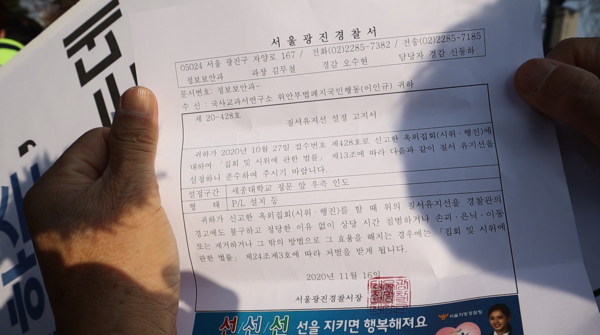 서울광진경찰서
05024 서울 광진구 자양로 167 / 전화(02)2285-7382 / 전송(02)2285-7185
정보보안과 과장 김무철 경감 오수현 담당자 경감 신동하
문서번호: 정보보안과-
수 신 : 국사교과서연구소 위안부법폐지국민행동(이인규) 귀하
제 20-428호
질서유지선 설정 고지서
귀하가 2020년 10월 27일 접수번호 제428호로 신고한 옥외집회(시위·행진)에
대하여 「집회 및 시위에 관한 법률」 제13조에 따라 다음과 같이 질서 유지선을
설정하니 준수하여 주시기 바랍니다.
설정구간 세종대학교 정문 앞 우측 인도
형 태 P/L 설치 등
귀하가 신고한 옥외집회(시위·행진)를 할 때 위의 질서유지선을 경찰관의
경고에도 불구하고 정당한 이유 없이 상당 시간 침범하거나 손괴·은닉·이동
또는 제거하거나 그 밖의 방법으로 그 효용을 해치는 경우에는 「집회 및 시위에
관한 법률」 제24조제3호에 따라 처벌을 받게 됩니다.
2020년 11월 16일
서울광진경찰서장
선선선 선을 지키면 행복해져요
서울지방경찰청